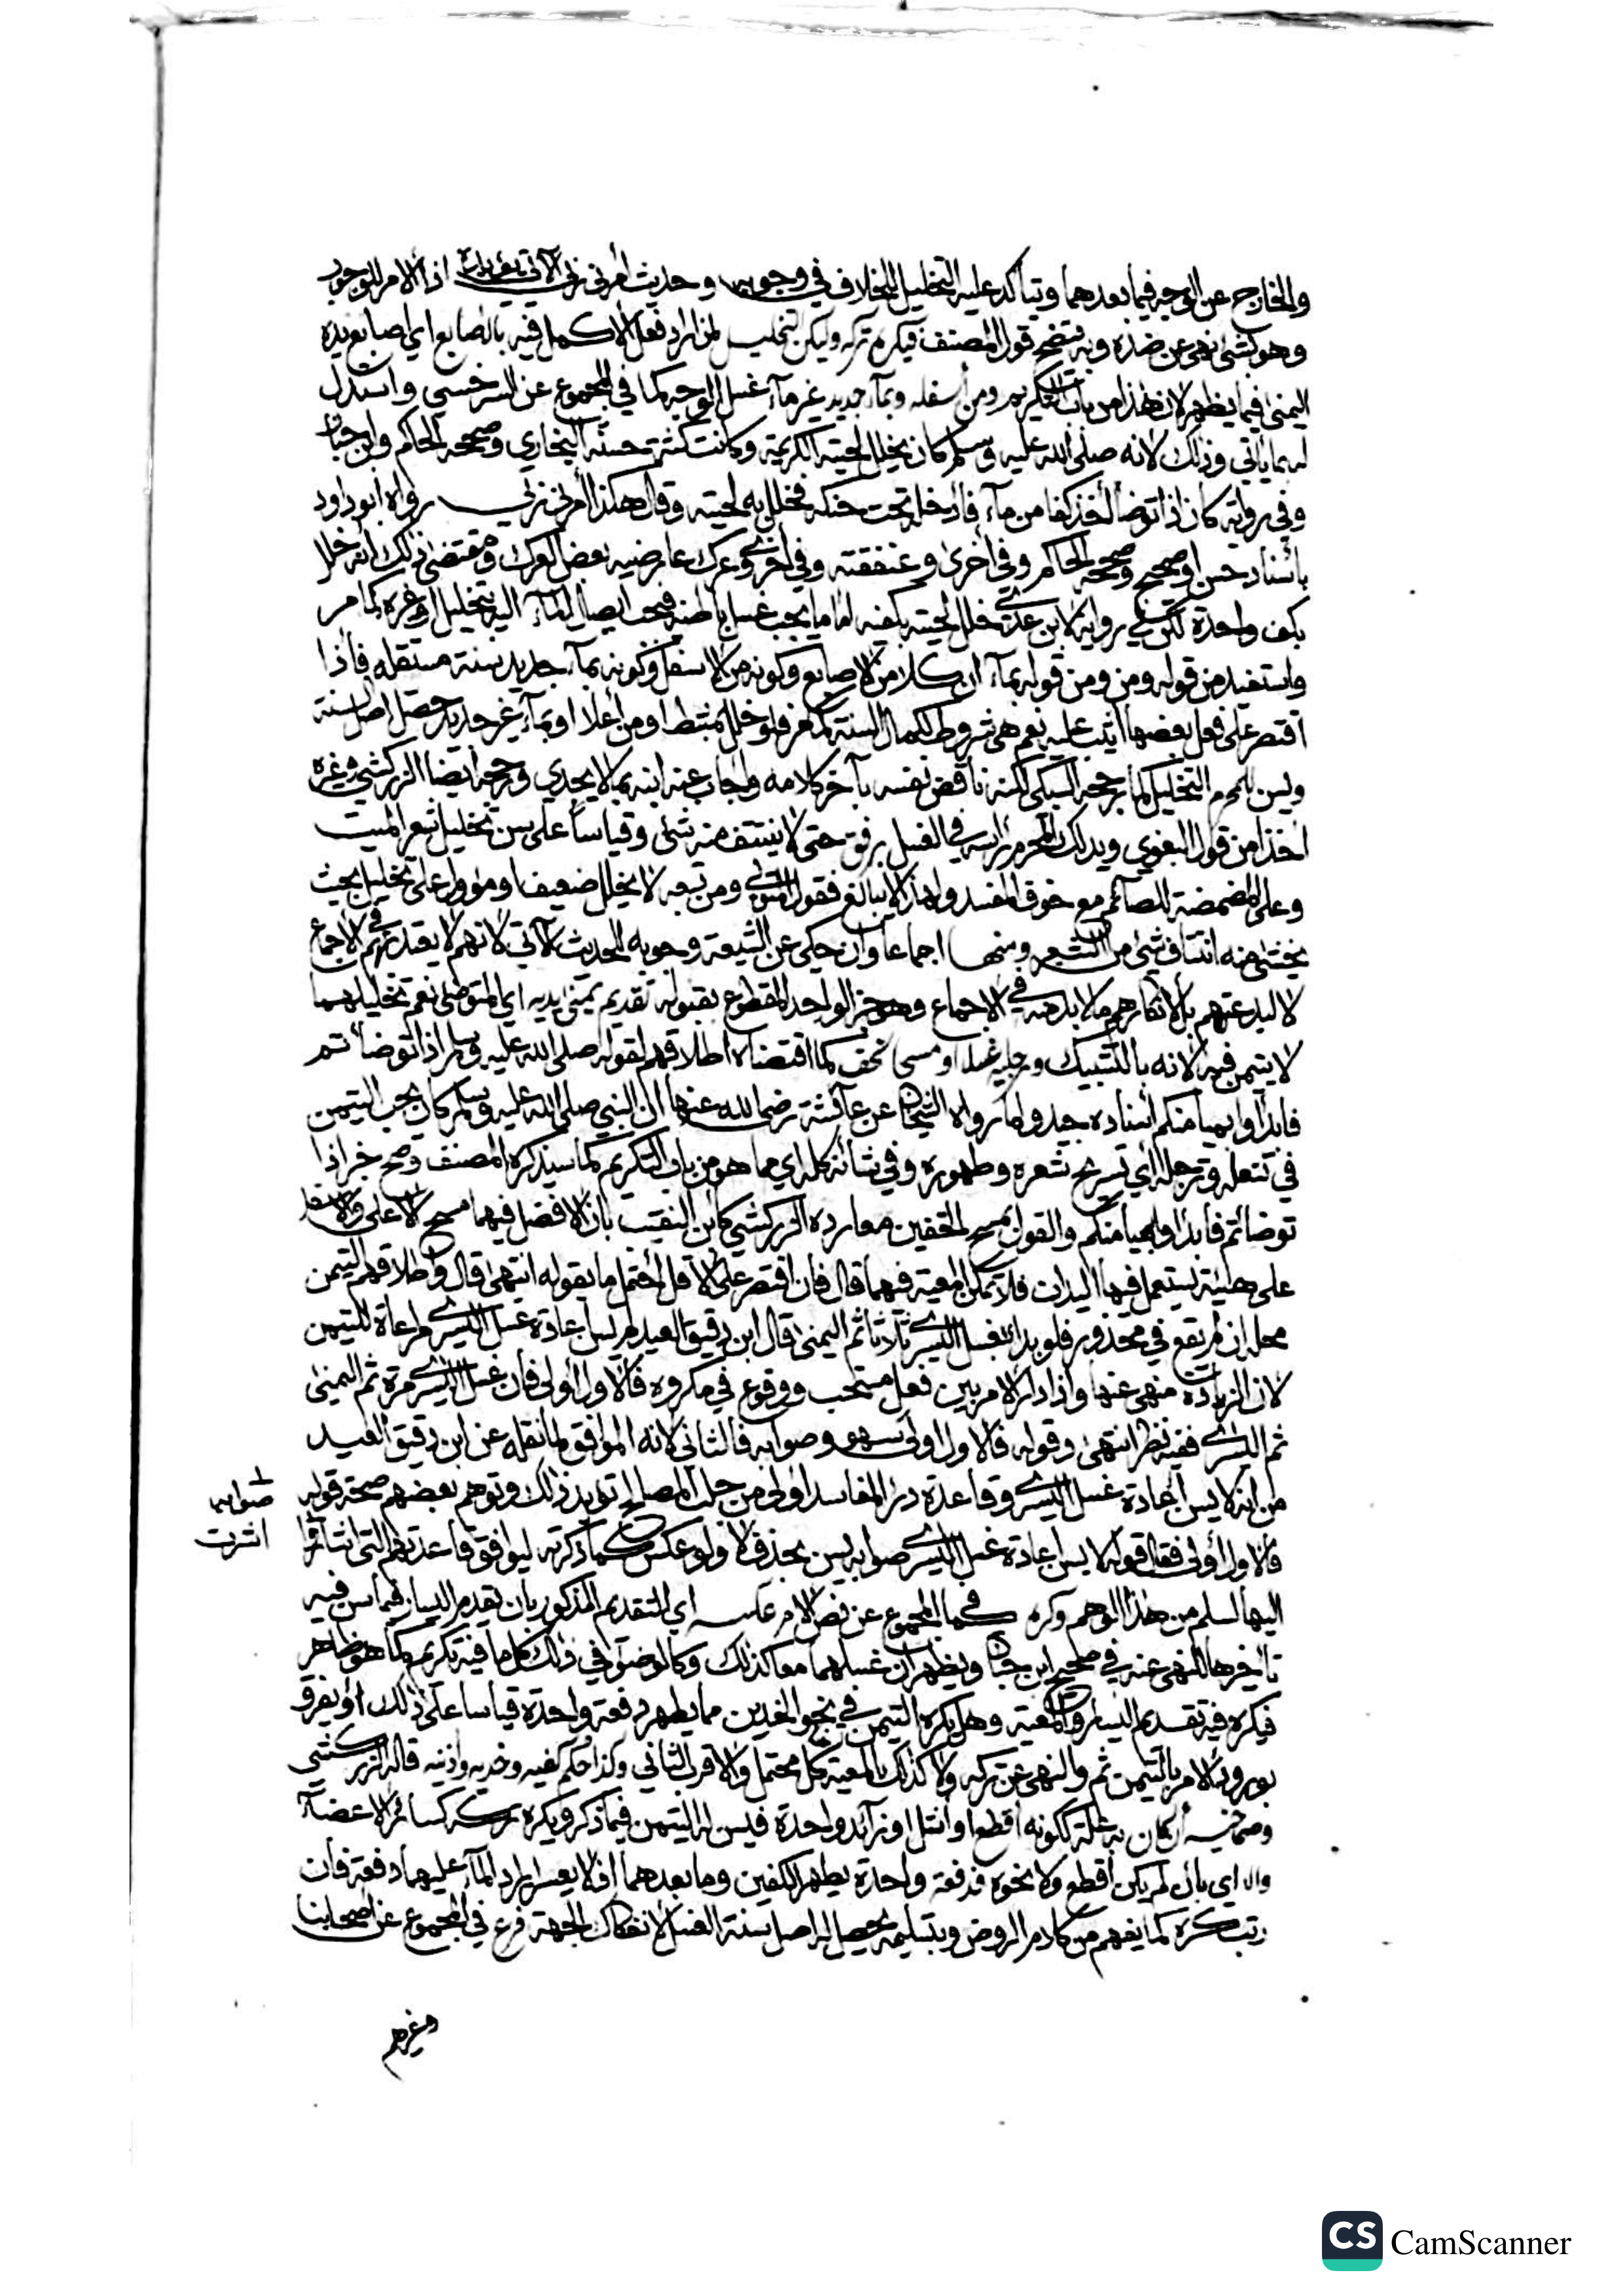 والخارج عن الوجه فيما بعدهما ويتأكد عليه التخليل للخلاف في وجوبه وحديث أمرني ربي الآتي يؤيده اذ الامر للوجوب
وهو كشئ نهي عن ضده وبه يتضح قول المصنف فيكره تركه وليكن التخليل لمن اراد فعل الاكمل فيه باصابع اي اصابع يده
اليمنى فيما يظهر لان هذا من باب التكريم ومن أسفله وبماء جديد غير ماء غسل الوجه كما في المجموع عن السرخسي واستدل
له بما يأتي وذلك لانه صلى الله عليه وسلم كان يخلل لحيته الكريمة وكانت كثة حسنه البخاري وصححه الحاكم وابن حبان
وفي رواية كان اذا توضأ أخذ كفا من ماء فأدخله تحت حنكه فخلل به لحيته وقال هكذا أمرني ربي رواه ابو داود
بأسناد حسن او صحيح وصححه الحاكم وفي أخرى وعنفقته وفي أخرى وعرك عارضيه بعض العرك ومقتضى ذلك انه خلل
بكف واحدة لكن في رواية لابن عدي خلل لحيته بكفيه اما ما يجب غسل باطنه فيجب ايصال الماء اليه بتخليل او غيره كما مر
واستفيد من قوله ومن ومن قوله بماء ان كلا من الاصابع وكونه من الاسفل وكونه بماء جديد سنة مستقله فاذا
اقتصر على فعل بعضها أثيب عليه نعم هي شروط لكمال السنة فلو خلل بمشط او من أعلا او بماء غير جديد حصل اصل السنة
ويسن للمحرم التخليل كما رجحه السبكي لكنه ناقض نفسه بآخر كلامه وأجاب عنه ابنه بما لا يجدي ورجحه أيضا الزركشي وغيره
اخذا من قول البغوي ويدلك المحرم رأسه في الغسل برفق حتى لا ينتتف منه شئ وقياسا على سن تخليل شعر الميت
وعلى المضمضة للصائم مع خوف المفسد ولهذا لا يبالغ فقول المتولي ومن تبعه لا يخلل ضعيف او مؤول على تخليل بحيث
يخشى منه انتتاف شئ من الشعر ومنها اجماعا وان حكي عن الشيعة وجوبه للحديث الآتي لانهم لا يعتد بهم في الاجماع
لا لبدعتهم بل لانكارهم ما لا بد منه في الاجماع وهو خبر الواحد المقطوع بقبوله تقديم يمنى يديه اي المتوضئ نعم تخليلهما
لا يتيمن فيه لانه بالتشبيك ورجليه غسلا او مسح خف كما اقتضاه اطلاقهم لقوله صلى الله عليه وسلم اذا توضأتم
فابدأوا بميامنكم أسناده جيد ولما رواه الشيخان عن عائشة رضي الله عنها ان النبي صلى الله عليه وسلم كان يحب التيمن
في تنعله وترجله أي تسريح شعره وطهوره وفي شأنه كله اي مما هو من باب التكريم كما سيذكره المصنف وصح خبر اذا
توضأتم فابدأوا بميامنكم والقول بمسح الخفين معا رده الزركشي كابن النقيب بان الافضل فيهما مسح الاعلى والاسفل
على هيئة يستعمل فيها اليدان فلا تمكن المعية فيهما قال فان اقتصر على الاقل احتمل ما يقوله انتهى قال واطلاقهم التيمن
محله ان لم يقع في محذور فلو بدأ بغسل اليسرى ثلاثا ثم اليمنى قال ابن دقيق العيد لم يسن اعادة غسل اليسرى مراعاة للتيمن
لان الزيادة منهي عنها واذا دار الامر بين فعل مستحب ووقوع في مكروه فالاول أولى فان غسل اليسرى مرة ثم اليمنى
ثم اليسرى ففيه نظر انتهى وقوله فالاول اولى سهو وصوابه فالثاني لانه الموافق لما نقله عن ابن دقيق العيد
من انه لا يسن اعادة غسل اليسرى وقاعدة درء المفاسد اولى من جلب المصالح تؤيد ذلك وتوهم بعضهم صحة قوله
فالاول أولى فقال قوله لا يسن اعادة غسل اليسرى صوابه يسن بحذف لا ولو عكس كما ذكرته ليوافق قاعدتهم التي اشارا
صوابه
اشرت
اليها لسلم من هذا الوهم وكره كما في المجموع عن نص الام عكسه اي التقديم المذكور بان تقدم اليسار فيما سن فيه
تأخيرها للنهي عنه في صحيح ابن حبان ويظهر ان غسلهما معا كذلك وكالوضوء في ذلك كل ما فيه تكريم كما هو ظاهر
فيكره فيه تقديم اليسار والمعية وهل يكره التيمن في نحو الخدين مما يطهر دفعة واحدة قياسا على ذلك أو يفرق
بورود الامر بالتيمن ثم والنهي عن تركه ولا كذلك بالمعية كل محتمل والاقرب الثاني وكذا حكم كفيه وخديه وأذنيه قاله الزركشي
وصماخيه أن كان به علة ككونه أقطع او أشل او زائد واحدة فيسن له التيمن فيما ذكر ويكره تركه كسائر الاعضاء
والا اي بان لم يكن أقطع ولا نحوه فدفعة واحدة يطهر الكفين وما بعدهما اذ لا يعسر ايراد الماء عليهما دفعة فان
رتب كره كما يفهم من كلام الروض وبتسليمه يحصل له اصل سنة الغسل لانفكاك الجهة فرع في المجموع عن أصحابنا
وغيرهم
CS CamScanner